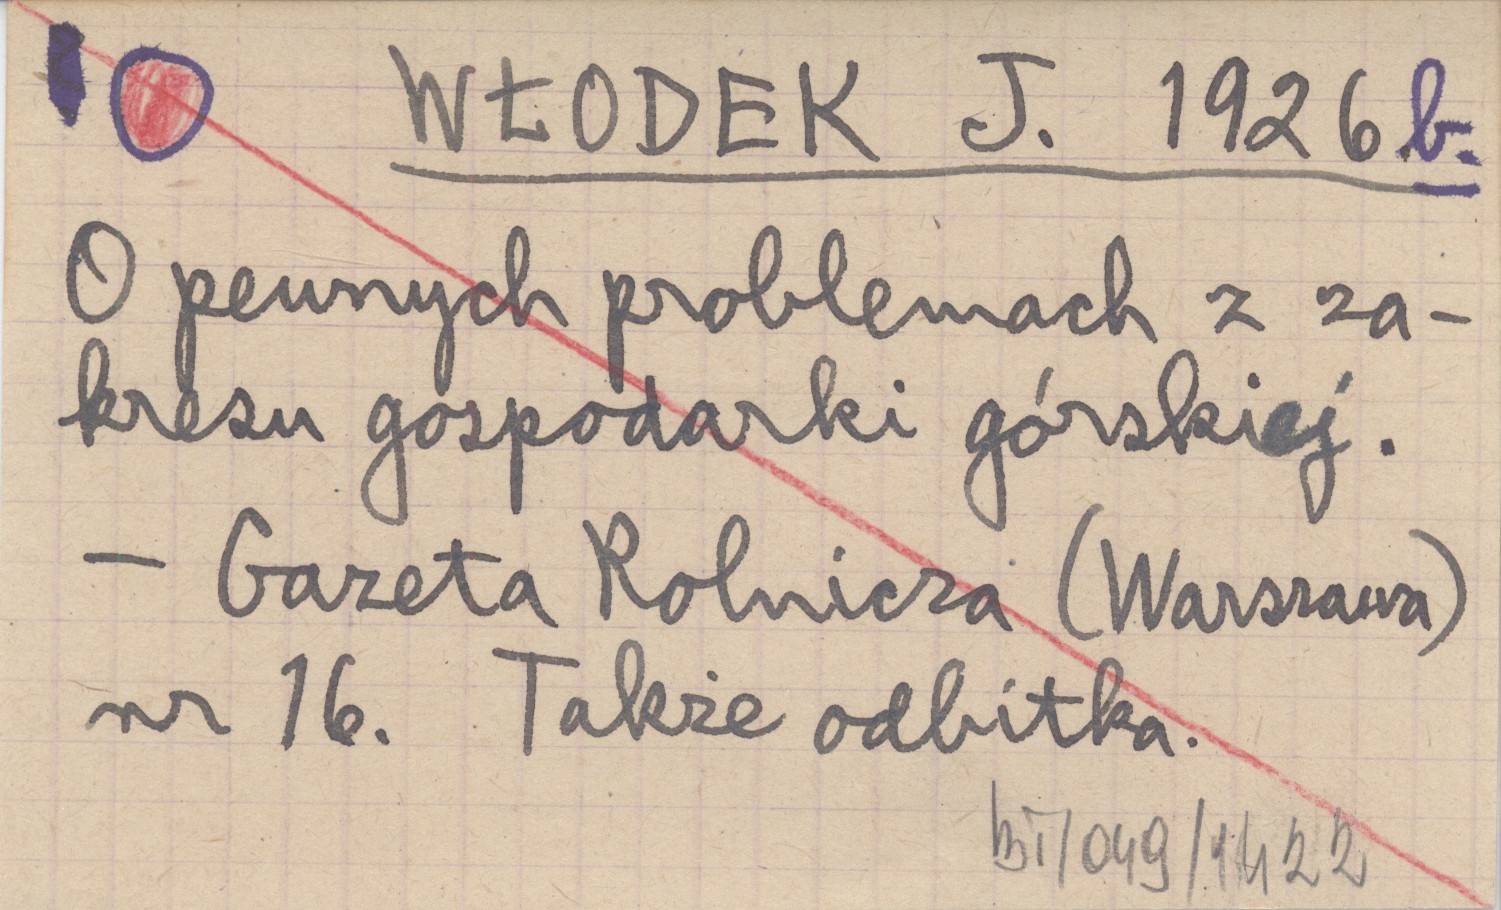 WŁODEK J. 1926.b.
O pewnych problemach z za-
kresu gospodarki górskiej.
- Gazeta Rolnicza (Warszawa)
nr 16. Także odbitka.
BT/049/1422